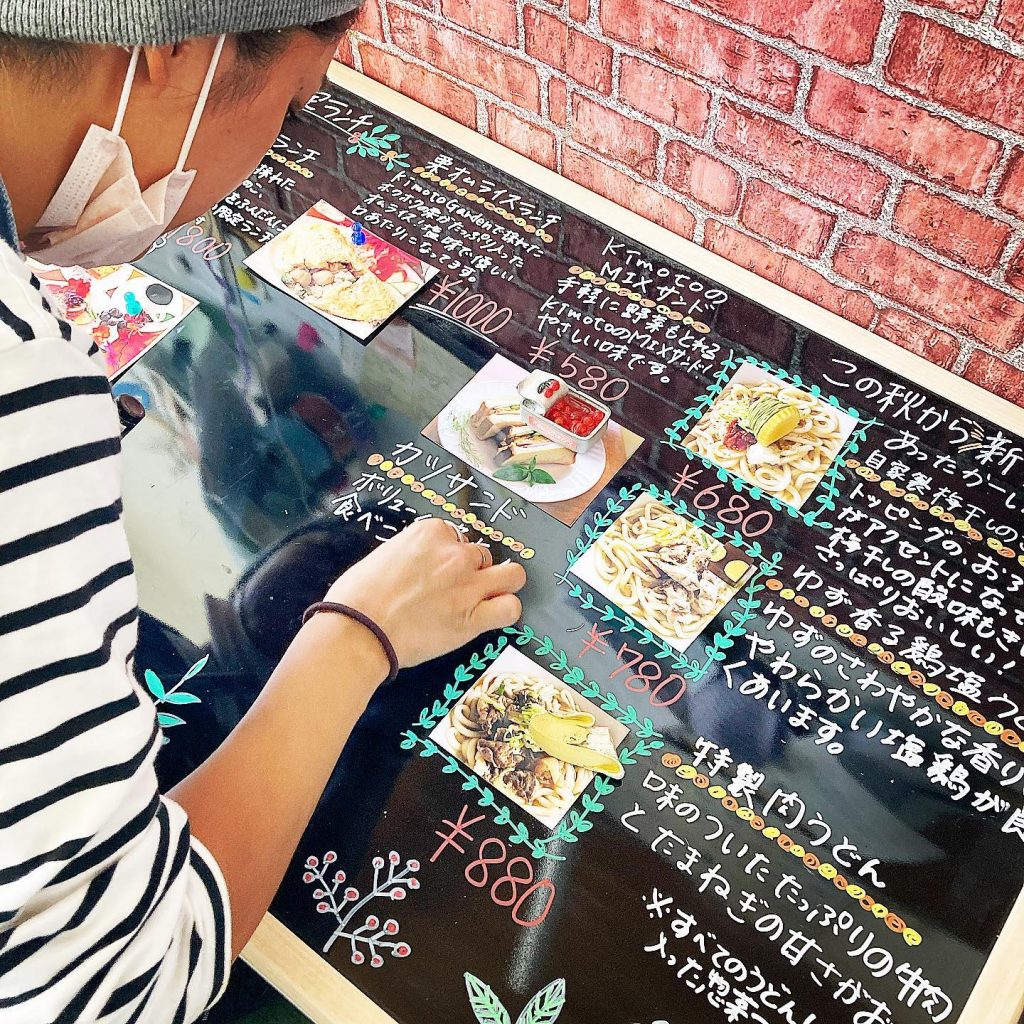 ランチ
ランチ
¥800
栗オムライスランチ
Kimoto Gardenで採れた
ホクホク栗がたっぷり入った
オムライス。塩味で優しい
¥1000
Kimotoの
MIXサンド
手軽に野菜もとれる
KimotoのMIXサンド!
やさしい味です。
¥580
カツサンド
ボリュー
食べご
この秋から新
あったかーい
自家製梅干しの
トッピングのおろ
がアクセントになって
梅干しの酸味も
さっぱりおいしい!
¥680
ゆず香る鶏塩う
ゆずのさわやかな香り
やわらかい塩鶏が良
くあいます。
¥780
特製肉うどん
味のついたたっぷりの牛肉
とたまねぎの甘さがお
¥880
※すべてのうどん
入った惣菜